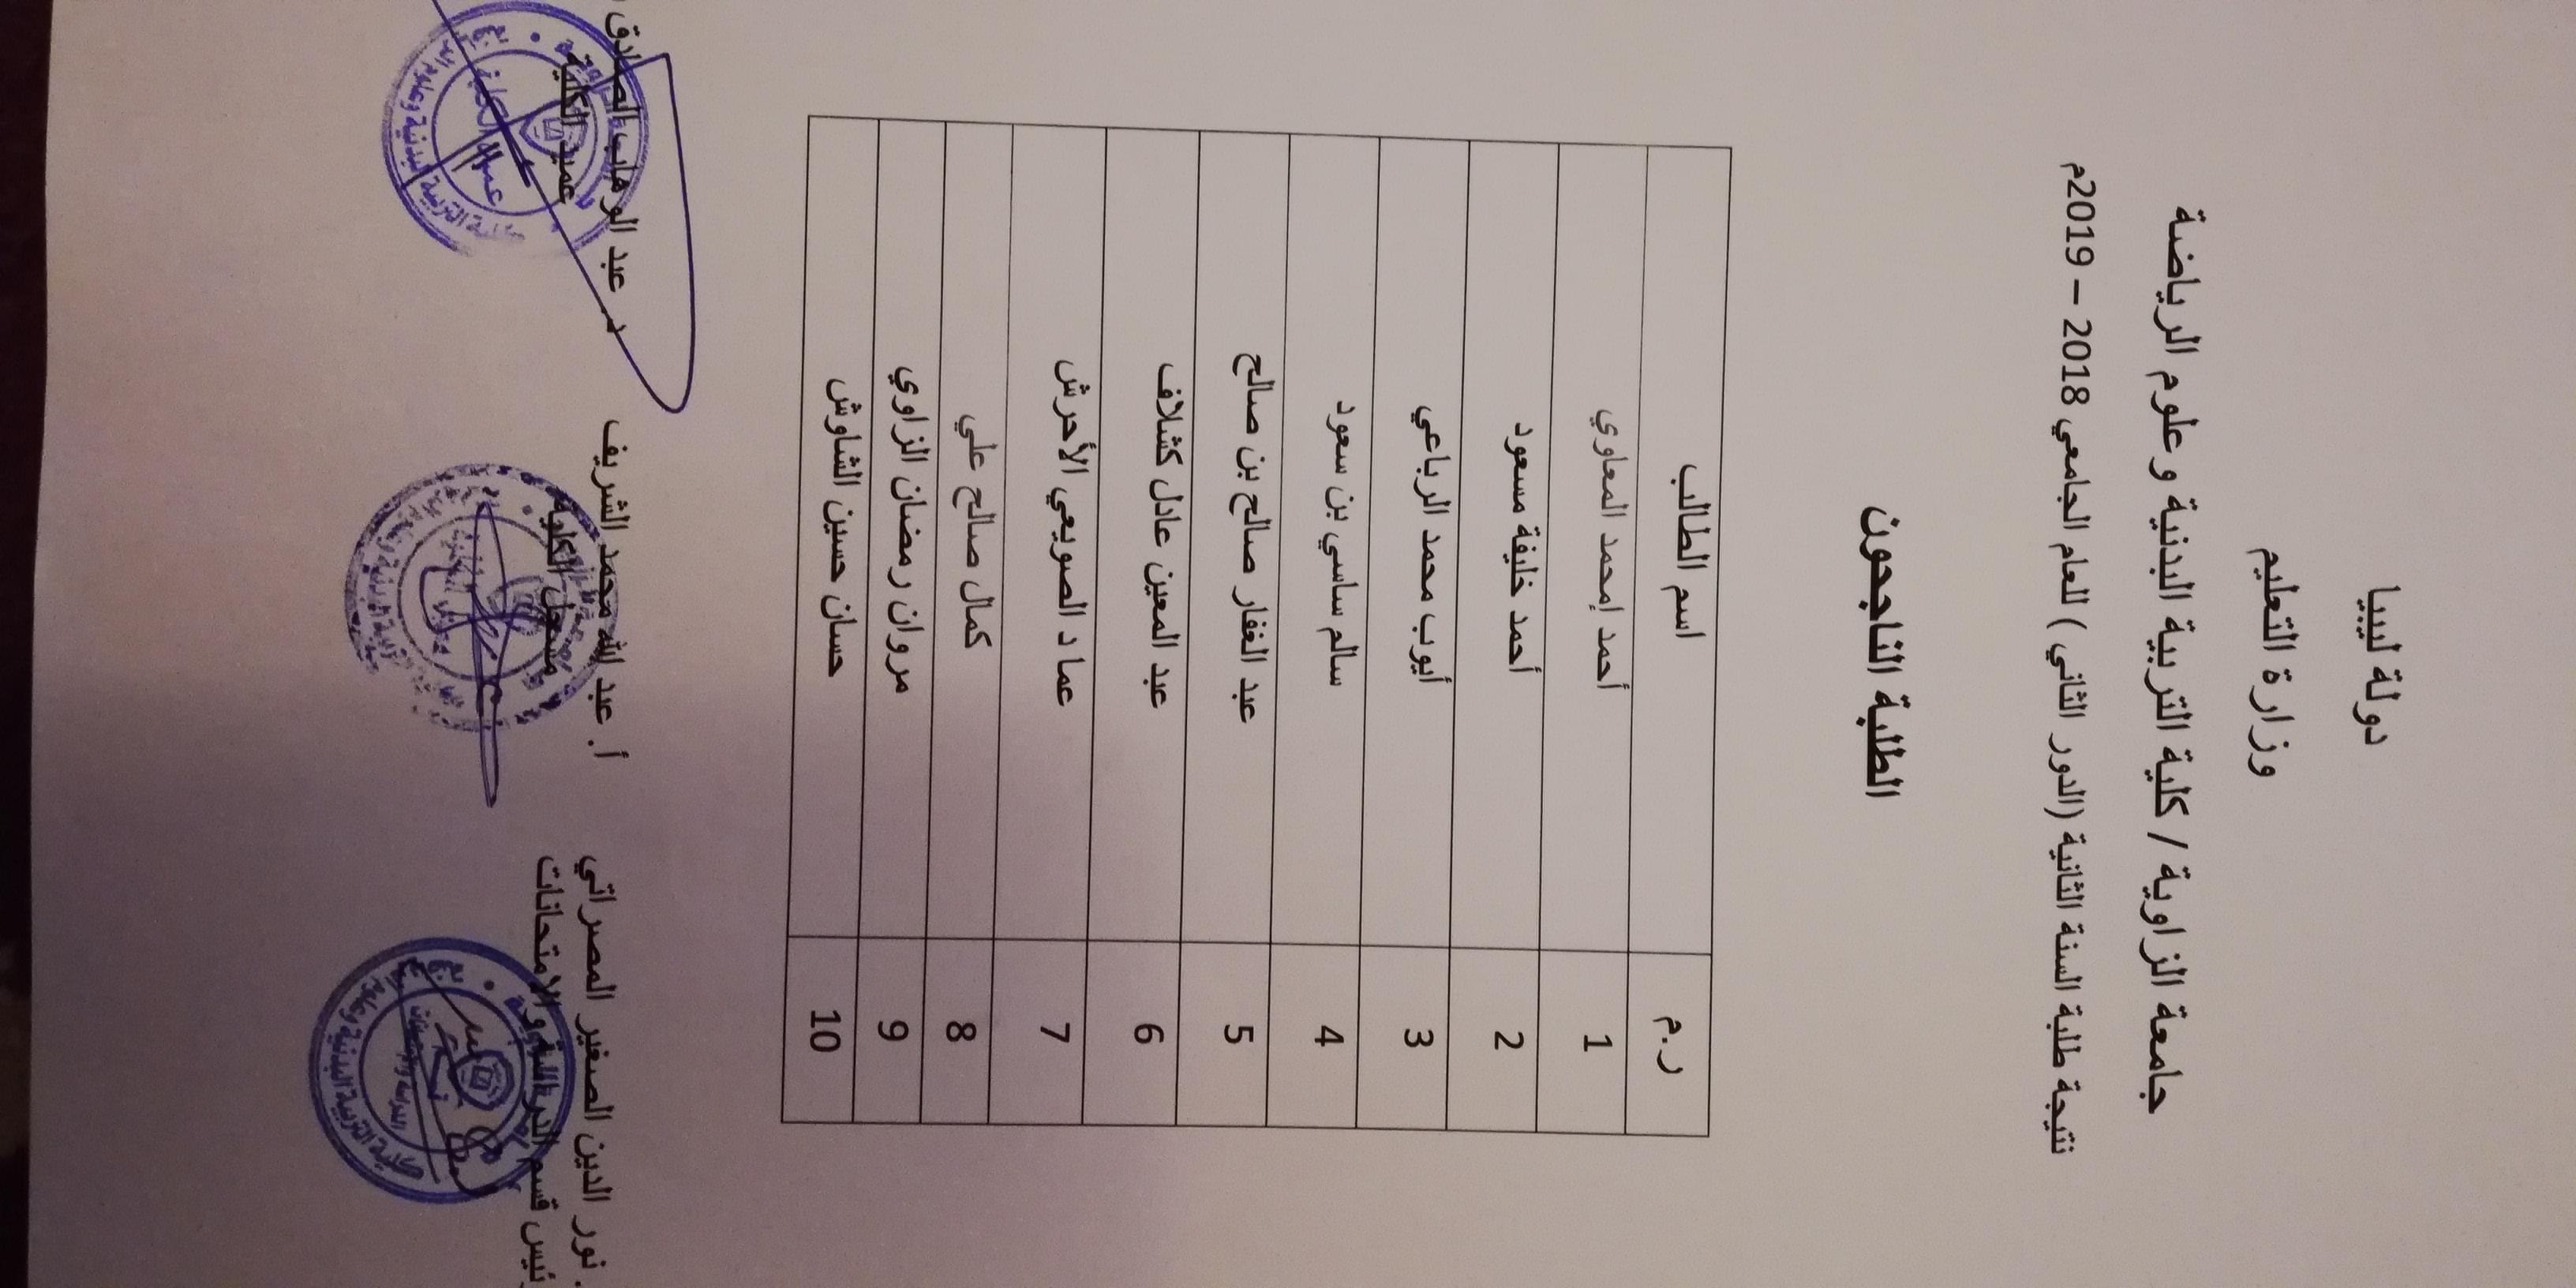 دولة ليبيا
وزارة التعليم
جامعة الزاوية / كلية التربية البدنية وعلوم الرياضة
نتيجة طلبة السنة الثانية (الدور الثاني ) للعام الجامعي 2018 – 2019م
الطلبة الناجحون
ر.م اسم الطالب
1 أحمد إمحمد المعاوي
2 أحمد خليفة مسعود
3 أيوب محمد الرباعي
4 سالم ساسي بن سعود
5 عبد الغفار صالح بن صالح
6 عبد المعين عادل كشلاف
7 عما د الصويعي الأحرش
8 كمال صالح علي
9 مروان رمضان الزاوي
10 حسان حسين الشاوش
. نور الدين الصغير المصراتي أ. عبد الله محمد الشريف د. عبد الوهاب الصادق
ئيس قسم الدراسة والامتحانات مسجل الكلية عميد الكلية
كلية التربية البدنية وعلوم
كلية التربية البدنية وعلوم